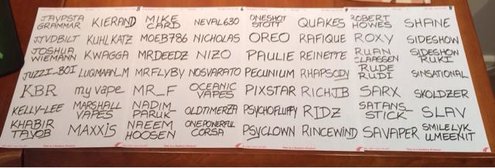 JAYPSTA
GRAMMAR
JTVDBILT
JOSHUA
WIEMANN
JUZZI-BOI
KBR
KELLY-LEE
KHABIR
TAYOB
KIERAND
KUHLKATZ
KWAGGA
LUQMAAN_M
my vape
MARSHALL
VAPES
MAXXIS
MIKE
CARD
MOEB786
MRDEEDZ
MRFLYBY
MR_F
NADIM_
PARUK
NAEEM
HOOSEN
NEVAL630
NICHOLAS
NIZO
NOSVARATO
OCEANIC
VAPES
OLDTIMERZA
ONEPOWERFUL
CORSA
ONESHOT
STOTT
OREO
PAULIE
PECUNIUM
PIXSTAR
PSYCHOFLUFFY
PSYCLOWN
QUAKES
RAFIQUE
REINETTE
RHAPSODY
RICHJB
RIDZ
RINCEWIND
ROBERT
HOWES
ROXY
RUAN
CLAASSEN
RUDE
RUDI
SARX
SATANS_
STICK
SAVAPER
SHANE
SIDESHOW
SIDESHOW
RUKI
SINSATIONAL
SKOLDZER
SLAV
SMILELYK
UMEENIT